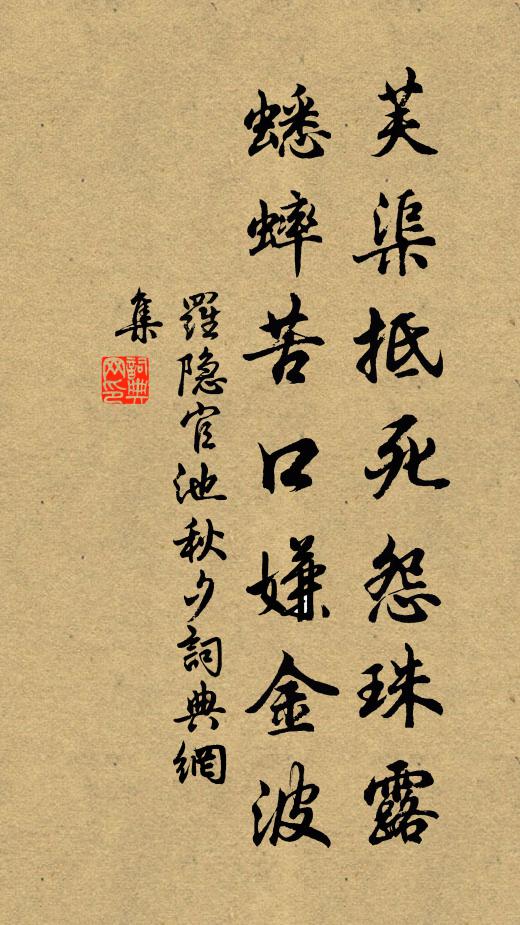 芙渠抵死怨珠露
蟋蟀苦口嫌金波
羅隐官池秋夕詞典網
集
詞典
网印